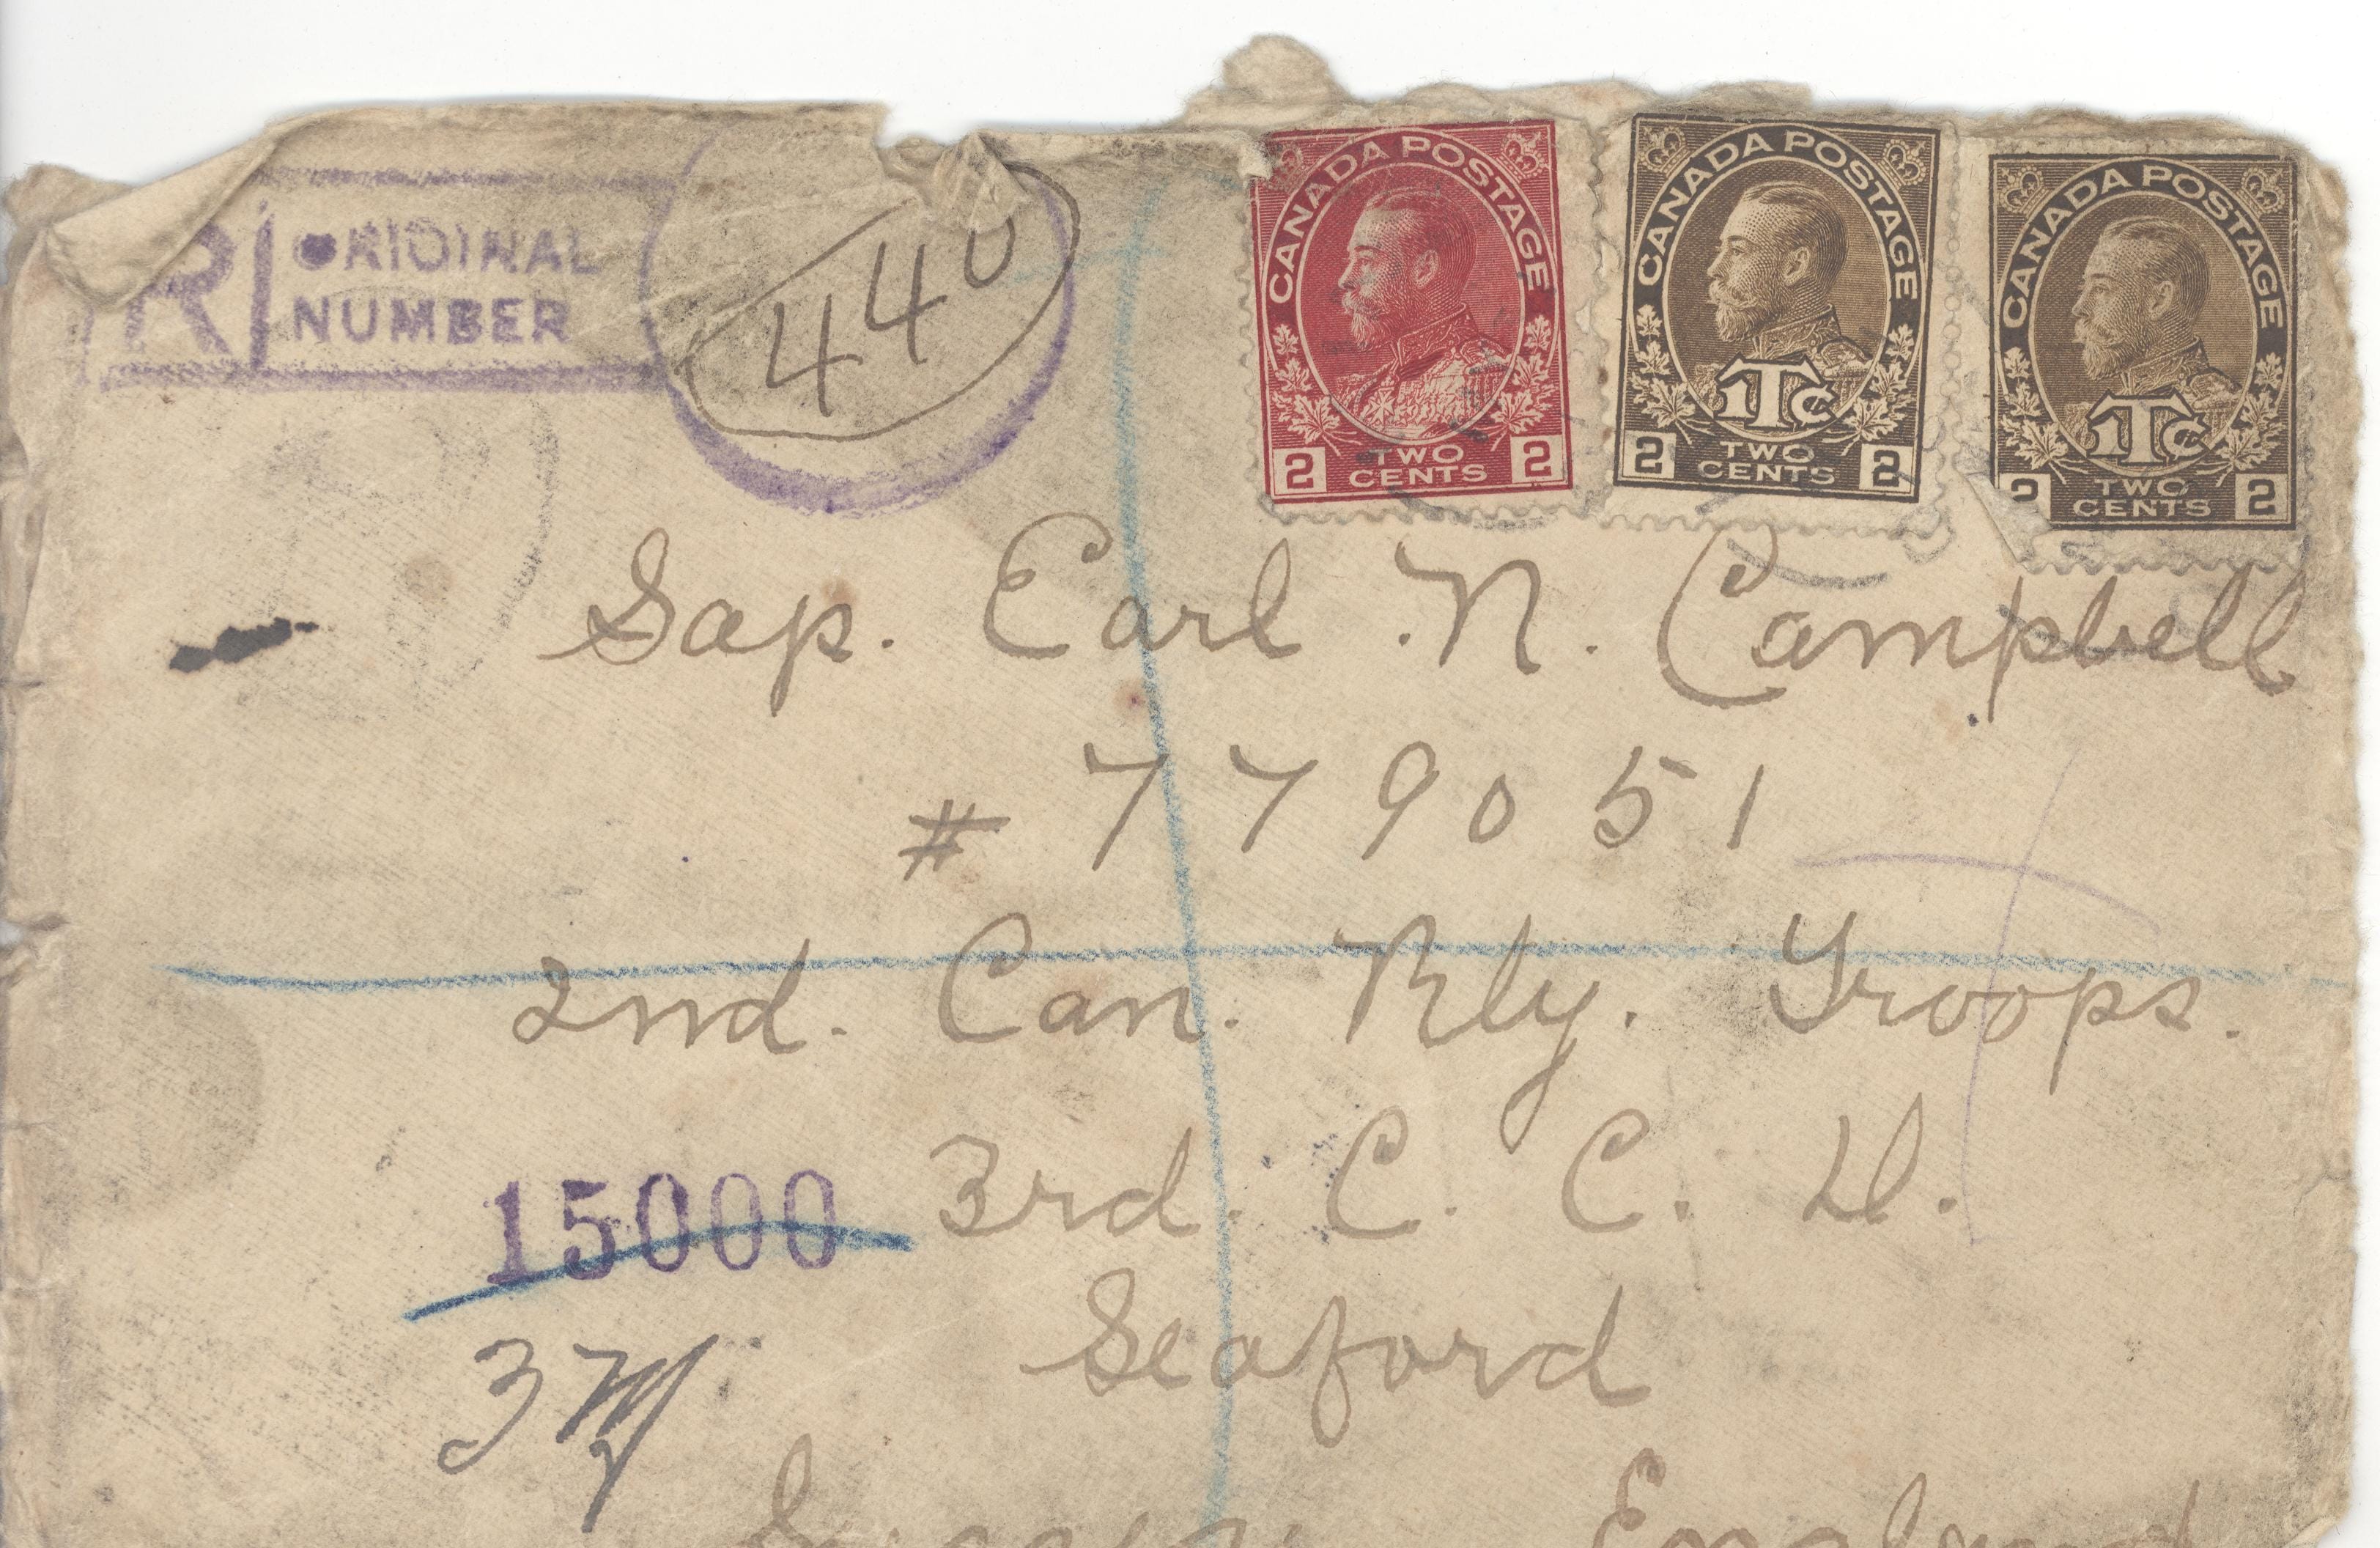 R ORIGINAL
NUMBER
440
CANADA POSTAGE
2 TWO CENTS 2
CANADA POSTAGE
1Tc
2 TWO CENTS 2
CANADA POSTAGE
1Tc
2 TWO CENTS 2
Sap. Earl N. Campbell
# 779051
2nd. Can. Rly. Troops.
3rd. C. C. D.
15000
Seaford
3
England